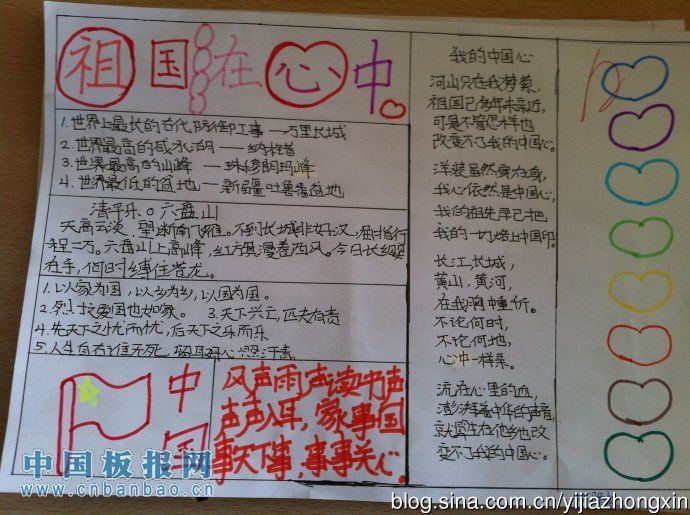 祖国在心中
1.世界上最长的古代防御工事——万里长城
2.世界最高的咸水湖——纳木错
3.世界最高的山峰——珠穆朗玛峰
4.世界最低的盆地——新疆吐鲁番盆地
清平乐。六盘山
天高云淡,望断南飞雁。不到长城非好汉,屈指行
程二万。六盘山上高峰,红旗漫卷西风。今日长缨
在手,何时缚住苍龙。
1.以家为国,以乡为乡,以国为国。
2.烈士爱国也如家。 3.天下兴亡,匹夫有责
4.先天下之忧而忧,后天下之乐而乐
5.人生自古谁无死,留取丹心照汗青
中
国
风声雨声读书声
声声入耳,家事国
事天下事,事事关心。
我的中国心
河山只在我梦萦,
祖国已多年未亲近,
可是不管怎样也
改变不了我的中国心。
洋装虽然穿在身,
我心依然是中国心,
我的祖先早已把
我的一切烙上中国印。
长江,长城,
黄山,黄河,
在我胸中重千斤。
不论何时,
不论何地,
心中一样亲。
流在心里的血,
澎湃着中华的声音,
就算生在他乡也改
变不了我的中国心。
中国板报网
www.cnbanbao.cn
blog.sina.com.cn/yijiazhongxin